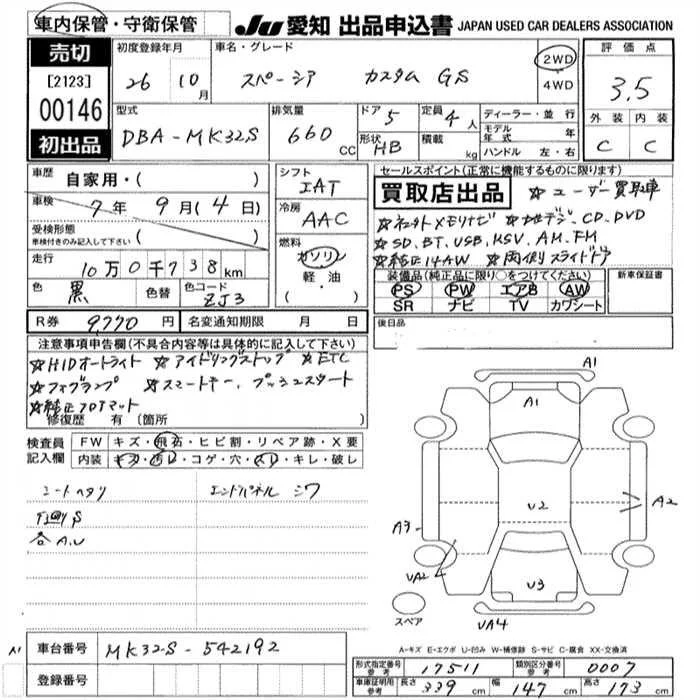 車内保管・守衛保管
JU 愛知 出品申込書 JAPAN USED CAR DEALERS ASSOCIATION
売切
[2123]
00146
初出品
初度登録年月 車名・グレード 評価点
26 10月 スペーシア カスタム GS 2WD・4WD 3.5
外装 内装
C C
型式 排気量 ドア 5 定員 4人 ディーラー・並行
DBA-MK32S 660CC 形状 HB 積載 kg モデル年式 年
ハンドル 左・右
車歴 自家用・( )
車検 7年 9月(4日)
受検形態
車検付きのみ記入して下さい ( )
走行 10万0千738km
色 黒 色替 色コード ZJ3
シフト IAT
冷房 AAC
燃料 ガソリン 軽油
セールスポイント(正常に機能するものに限ります)
買取店出品 ☆ユーザー買取車
☆ネット×モリナビ ☆地デジ、CD、DVD
☆SD、BT、USB、MSV、AM、FM
☆純正14AW ☆両側スライドドア
装備品(純正品に限り○をつけてください) 新車保証書
PS PW エアB AW
SR ナビ TV カワシート
R券 9,770円 名変通知期限 月 日
後日品
注意事項申告欄(不具合内容等は具体的に記入して下さい)
☆HIDオートライト ☆アイドリングストップ ☆ETC
☆フォグランプ ☆スマートキー、プッシュスタート
☆純正フロアマット
修復歴 有(箇所
検査員記入欄 FW キズ・飛石・ヒビ割・リペア跡・X要
内装 キズ・汚レ・コゲ・穴・スレ・キレ・破レ
シートヘタリ エンドパネル シワ
下廻りS
各A、U
A1
A1
U2
A2
A3
UA2
U3
UA4
スペア
A-キズ E-エクボ U-凹み W-補修跡 S-サビ C-腐食 XX-交換済
A1
車台番号 MK32S-542192
登録番号
形式指定番号 参考 17511 類別区分番号 参考 0007
車庫証明用 参考 長さ 339cm 幅 147cm 高さ 173cm